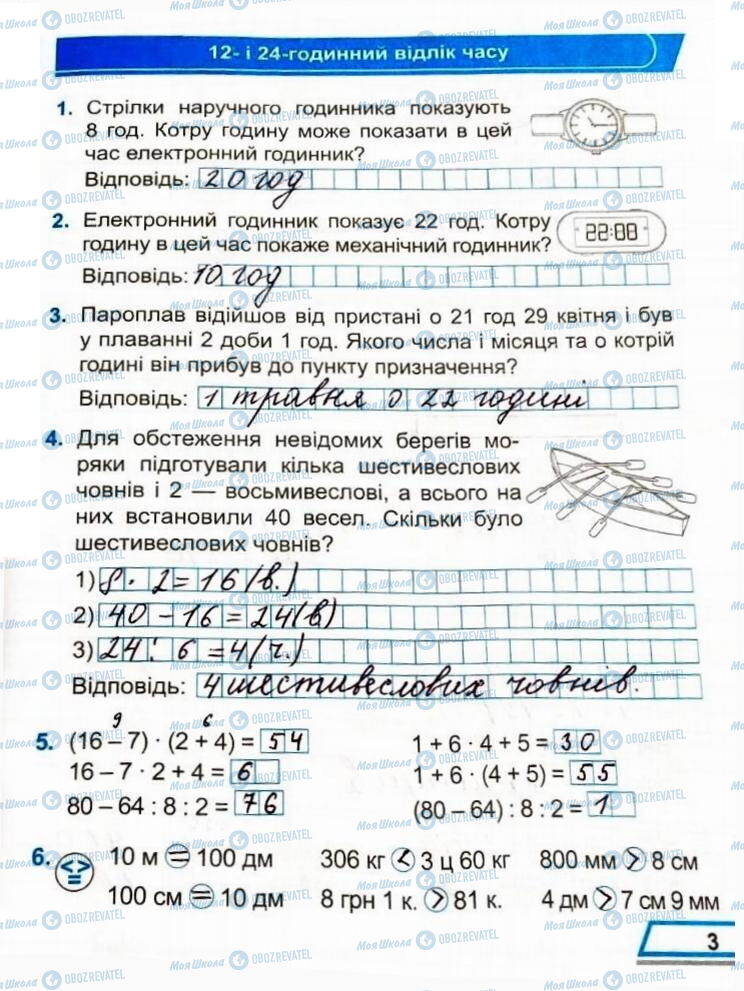 12- і 24-годинний відлік часу
1. Стрілки наручного годинника показують
8 год. Котру годину може показати в цей
час електронний годинник?
Відповідь: 20 год
2. Електронний годинник показує 22 год. Котру
годину в цей час покаже механічний годинник?
22:00
Відповідь: 10 год
3. Пароплав відійшов від пристані о 21 год 29 квітня і був
у плаванні 2 доби 1 год. Якого числа і місяця та о котрій
годині він прибув до пункту призначення?
Відповідь: 1 травня о 22 годині
4. Для обстеження невідомих берегів мо-
ряки підготували кілька шестивеслових
човнів і 2 — восьмивеслові, а всього на
них встановили 40 весел. Скільки було
шестивеслових човнів?
1) 8 · 2 = 16 (в.)
2) 40 – 16 = 24 (в)
3) 24 : 6 = 4 (ч.)
Відповідь: 4 шестивеслових човнів.
9 6
5. (16 – 7) · (2 + 4) = 54 1 + 6 · 4 + 5 = 30
16 – 7 · 2 + 4 = 6 1 + 6 · (4 + 5) = 55
80 – 64 : 8 : 2 = 76 (80 – 64) : 8 : 2 = 1
6. 10 м = 100 дм 306 кг < 3 ц 60 кг 800 мм > 8 см
100 см = 10 дм 8 грн 1 к. > 81 к. 4 дм > 7 см 9 мм
3
МояШкола OBOZREVATEL